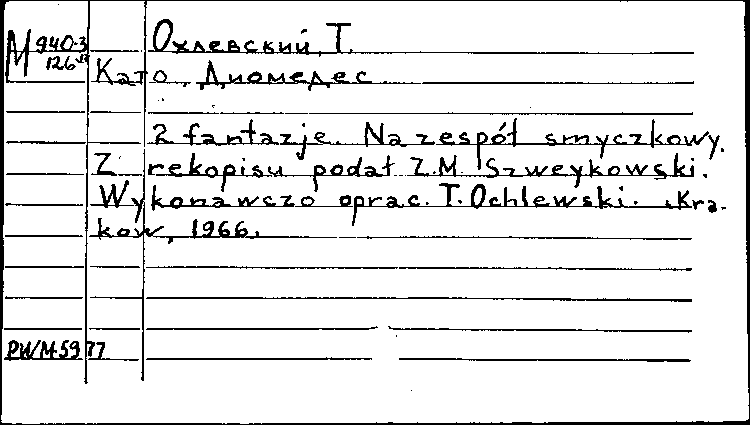 М 940-3
126
Охлевский, Т.
Като, Диомедес
2 fantazje. Na zespół smyczkowy.
Z rekopisu podał Z.M. Szweykowski.
Wykonawczo oprac. T. Ochlewski. Kra-
kow, 1966.
PWM-5977